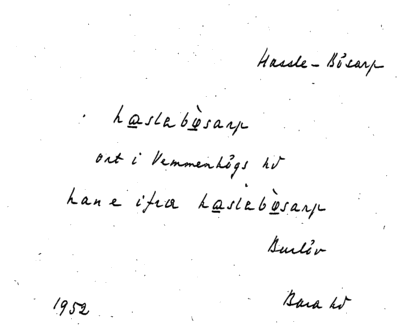 Hassle-Bösarp
haslabø̀sarp
ort i Vemmenhögs hd
han e ifra hasləbø̀sarp
Burlöv
1952 Bara hd